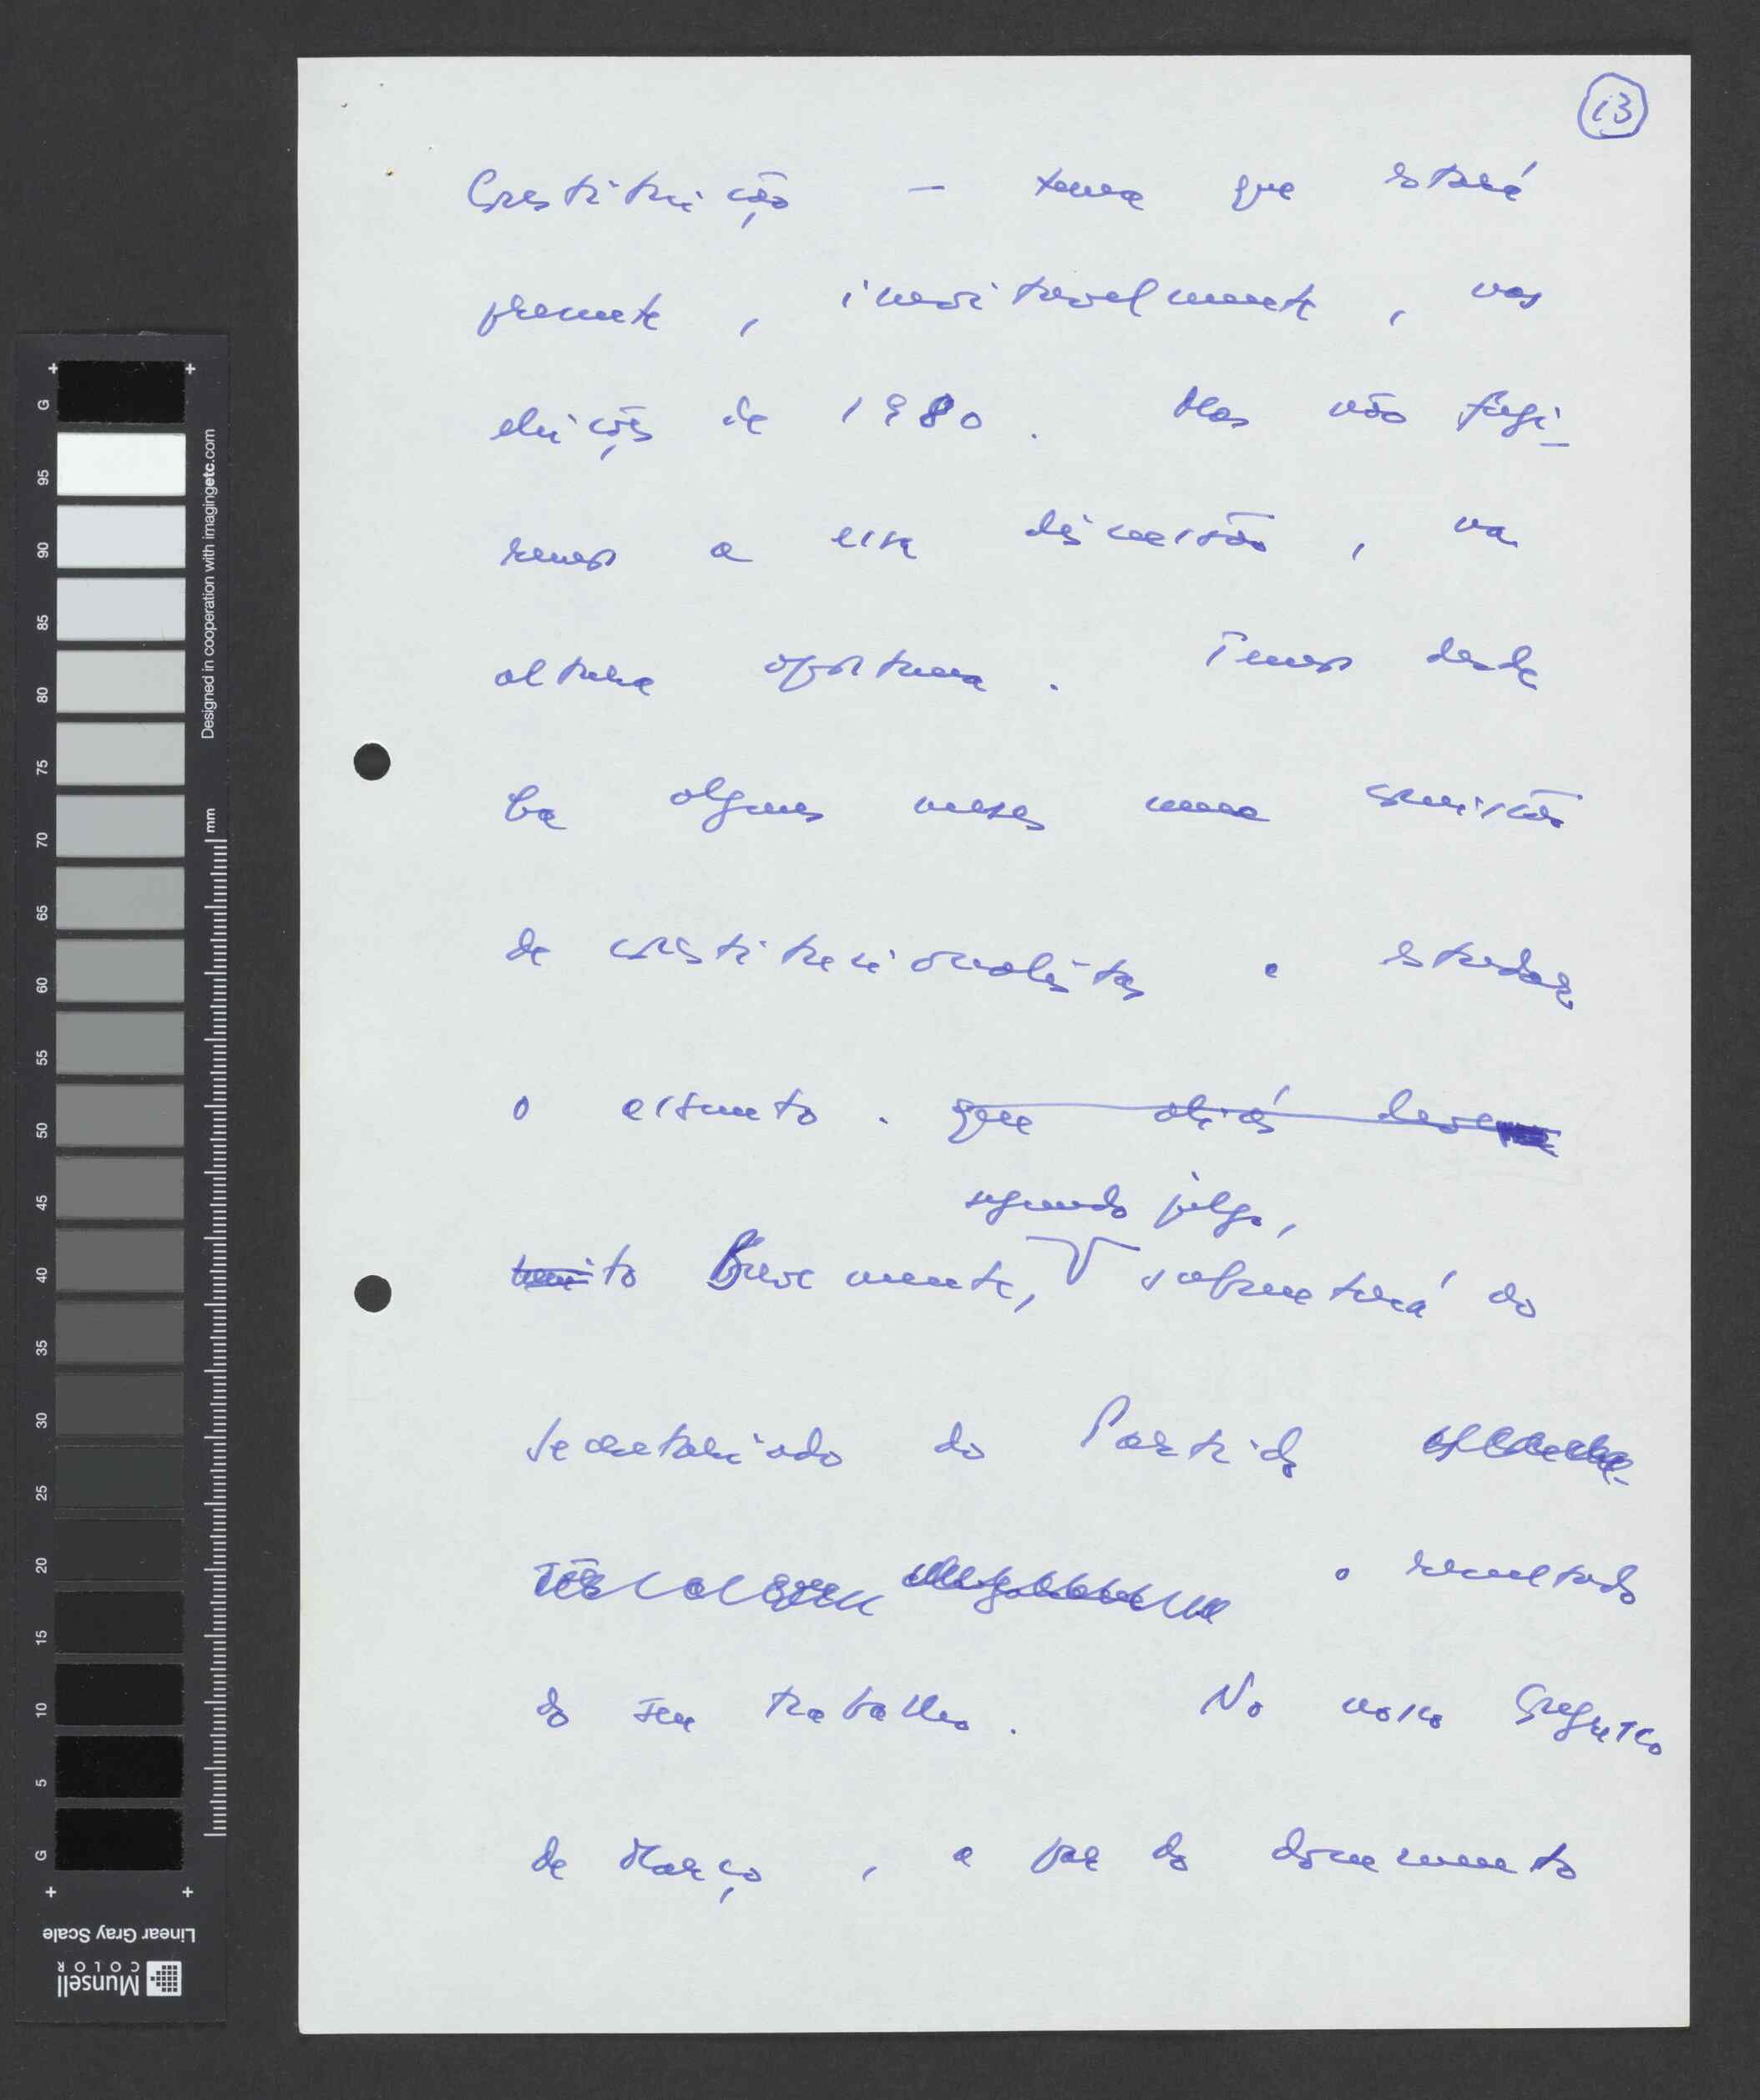 13
Constituição — tema que estará
presente, inevitavelmente, nas
eleições de 1980. Mas não fugi-
remos a essa discussão, na
altura oportuna. Temos desde
há alguns meses uma comissão
de constitucionalistas a estudar
o assunto. que aliás deve
segundo julgo,
muito Brevemente, submeterá ao
Secretariado do Partido
o resultado
do seu trabalho. No nosso Congresso
de Março, a par do documento
G 95 90 85 80 75 70 65 60 55 50 45 40 35 30 25 20 15 10 5 G
Designed in cooperation with imagingetc.com
mm
Linear Gray Scale
Munsell
COLOR